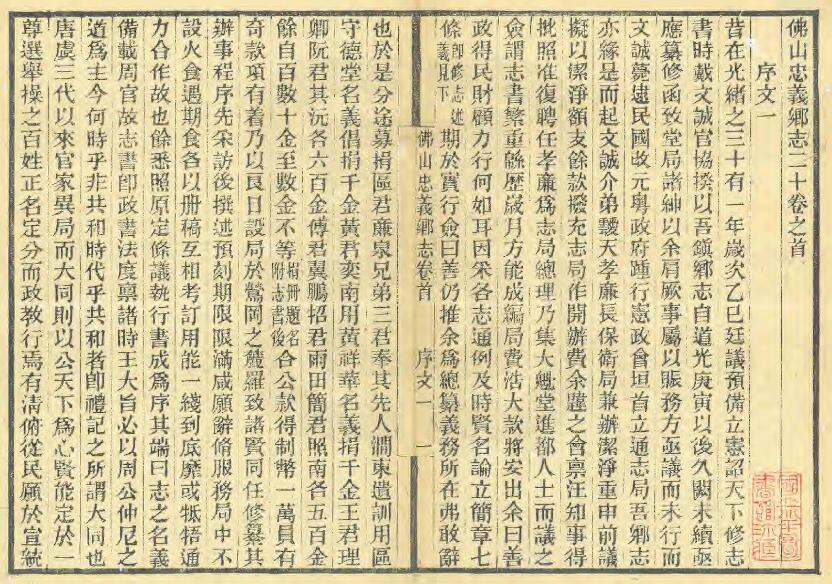 佛山忠義鄉志二十卷之首
序文一
昔在光緒之三十有一年歲次乙巳廷議預備立憲詔天下修志
書時戴文誠官協揆以吾鎮鄉志自道光庚寅以後久闕未續亟
應纂修函致堂局諸紳以余肩厥事屬以賬務方亟議而未行而
文誠薨逮民國改元粵政府踵行憲政會垣首立通志局吾鄉志
亦緣是而起文誠介弟天孝廉長保衛局兼辦潔淨重申前議
擬以潔淨額支餘款撥充志局作開辦費余韙之會稟汪知事得
批照准復聘任孝廉爲志局總理乃集大魁堂進鄙人士而議之
僉謂志書繁重緜歷歲月方能成編局費浩大款將安出余曰善
政得民財顧力行何如耳因采各志通例及時賢名論立簡章七
條卽修志述義見下期於實行僉曰善仍推余爲總纂義務所在弗敢辭
佛山忠義鄉志卷首 序文一 一
也於是分途募捐區君廉泉兄弟三君奉其先人澗東遺訓用區
守德堂名義倡捐千金黃君奕南用黃祥華名義捐千金王君理
卿阮君其沅各六百金傅君翼鵬招君雨田簡君照南各五百金
餘自百數十金至數金不等捐冊題名附志書後合公款得制幣一萬員有
奇款項有着乃以艮日設局於鶯岡之麓羅致諸賢同任修纂其
辦事程序先采訪後撰述預刻期限限滿咸願辭脩服務局中不
設火食遇期會各以册稿互相考訂用能一綫到底靡或牴牾通
力合作故也餘悉照原定條議執行書成爲序其端曰志之名義
備載周官故志書卽政書法度稟諸時王大旨必以周公仲尼之
道爲主今何時乎非共和時代乎共和者卽禮記之所謂大同也
唐虞三代以來官家異局而大同則以公天下爲心賢能定於一
尊選舉操之百姓正名定分而政教行焉有淸俯從民願於宣統